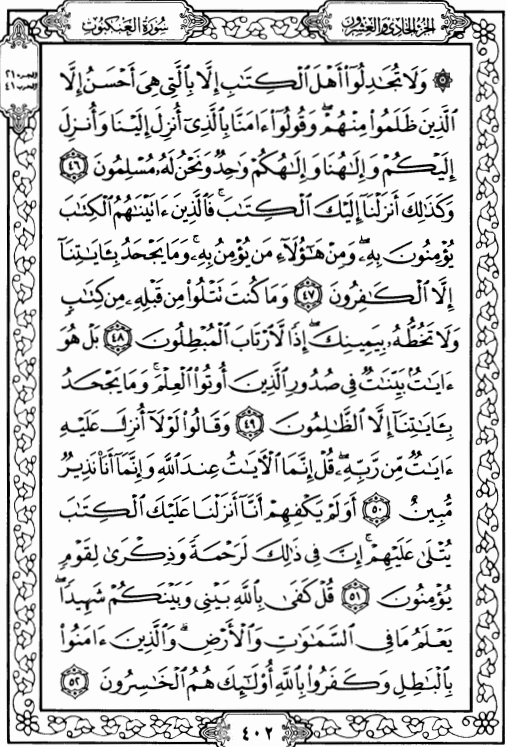 الجزء الحادي والعشرون
سورة العنكبوت
الجزء ٢١
الحزب ٤١
۞ وَلَا تُجَـٰدِلُوٓا۟ أَهْلَ ٱلْكِتَـٰبِ إِلَّا بِٱلَّتِى هِىَ أَحْسَنُ إِلَّا
ٱلَّذِينَ ظَلَمُوا۟ مِنْهُمْ ۖ وَقُولُوٓا۟ ءَامَنَّا بِٱلَّذِىٓ أُنزِلَ إِلَيْنَا وَأُنزِلَ
إِلَيْكُمْ وَإِلَـٰهُنَا وَإِلَـٰهُكُمْ وَٰحِدٌ وَنَحْنُ لَهُۥ مُسْلِمُونَ ٤٦
وَكَذَٰلِكَ أَنزَلْنَآ إِلَيْكَ ٱلْكِتَـٰبَ ۚ فَٱلَّذِينَ ءَاتَيْنَـٰهُمُ ٱلْكِتَـٰبَ
يُؤْمِنُونَ بِهِۦ ۖ وَمِنْ هَـٰٓؤُلَآءِ مَن يُؤْمِنُ بِهِۦ ۚ وَمَا يَجْحَدُ بِـَٔايَـٰتِنَآ
إِلَّا ٱلْكَـٰفِرُونَ ٤٧ وَمَا كُنتَ تَتْلُوا۟ مِن قَبْلِهِۦ مِن كِتَـٰبٍ
وَلَا تَخُطُّهُۥ بِيَمِينِكَ ۖ إِذًا لَّٱرْتَابَ ٱلْمُبْطِلُونَ ٤٨ بَلْ هُوَ
ءَايَـٰتٌۢ بَيِّنَـٰتٌ فِى صُدُورِ ٱلَّذِينَ أُوتُوا۟ ٱلْعِلْمَ ۚ وَمَا يَجْحَدُ
بِـَٔايَـٰتِنَآ إِلَّا ٱلظَّـٰلِمُونَ ٤٩ وَقَالُوا۟ لَوْلَآ أُنزِلَ عَلَيْهِ
ءَايَـٰتٌ مِّن رَّبِّهِۦ ۖ قُلْ إِنَّمَا ٱلْـَٔايَـٰتُ عِندَ ٱللَّهِ وَإِنَّمَآ أَنَا۠ نَذِيرٌ
مُّبِينٌ ٥٠ أَوَلَمْ يَكْفِهِمْ أَنَّآ أَنزَلْنَا عَلَيْكَ ٱلْكِتَـٰبَ
يُتْلَىٰ عَلَيْهِمْ ۚ إِنَّ فِى ذَٰلِكَ لَرَحْمَةً وَذِكْرَىٰ لِقَوْمٍ
يُؤْمِنُونَ ٥١ قُلْ كَفَىٰ بِٱللَّهِ بَيْنِى وَبَيْنَكُمْ شَهِيدًا ۖ
يَعْلَمُ مَا فِى ٱلسَّمَـٰوَٰتِ وَٱلْأَرْضِ ۗ وَٱلَّذِينَ ءَامَنُوا۟
بِٱلْبَـٰطِلِ وَكَفَرُوا۟ بِٱللَّهِ أُو۟لَـٰٓئِكَ هُمُ ٱلْخَـٰسِرُونَ ٥٢
٤٠٢